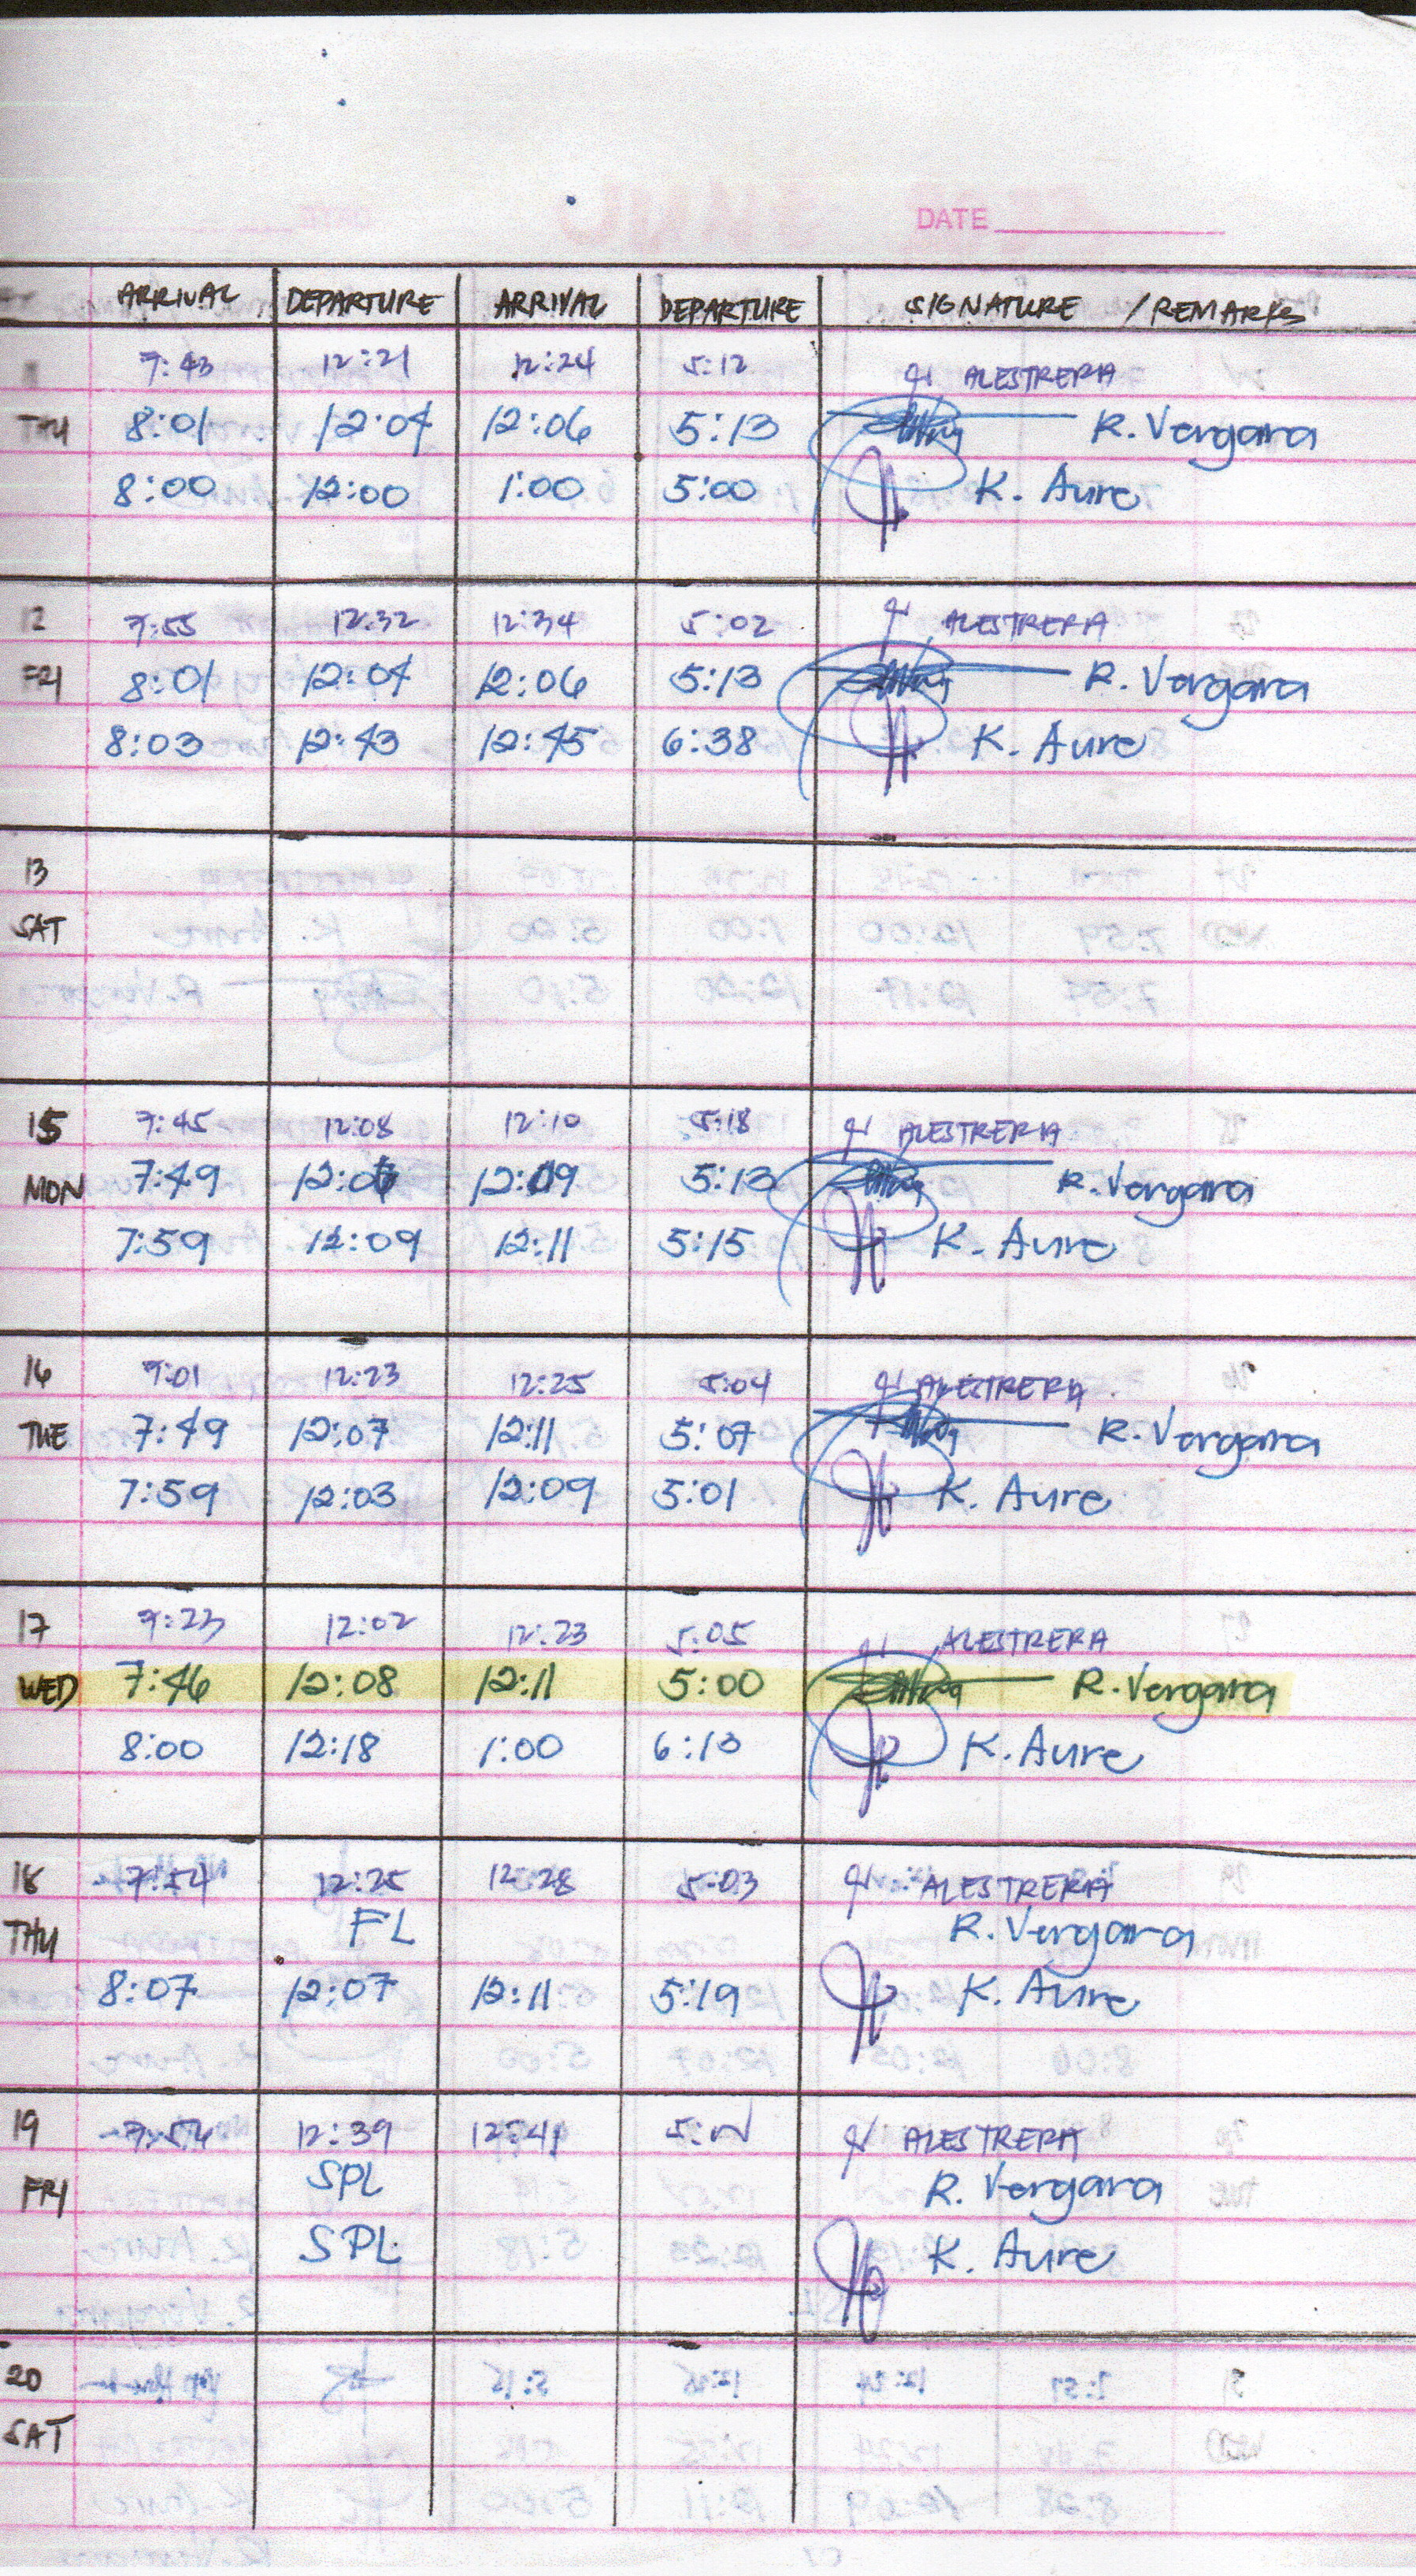 DATE
ARRIVAL DEPARTURE ARRIVAL DEPARTURE SIGNATURE / REMARKS
7:43 12:21 12:24 5:12 ALESTRERA
THU 8:01 12:04 12:06 5:13 R. Vergara
8:00 12:00 1:00 5:00 K. Aure
12 7:55 12:32 12:34 5:02 ALESTRERA
FRI 8:01 12:04 12:06 5:13 R. Vergara
8:03 12:43 12:45 6:38 K. Aure
13
SAT
15 7:45 12:08 12:10 5:18 ALESTRERA
MON 7:49 5:13 R. Vergara
7:59 12:09 12:11 5:15 K. Aure
16 7:01 12:23 12:25 5:04 ALESTRERA
TUE 7:49 12:07 12:11 5:07 R. Vergara
7:59 12:03 12:09 5:01 K. Aure
17 7:23 12:02 12:23 5:05 ALESTRERA
WED 7:46 12:08 12:11 5:00 R. Vergara
8:00 12:18 1:00 6:13 K. Aure
18 7:54 12:25 12:28 5:03 ALESTRERA
THU FL R. Vergara
8:07 12:07 12:11 5:19 K. Aure
19 12:39 12:41 ALESTRERA
FRI SPL R. Vergara
SPL K. Aure
20
SAT